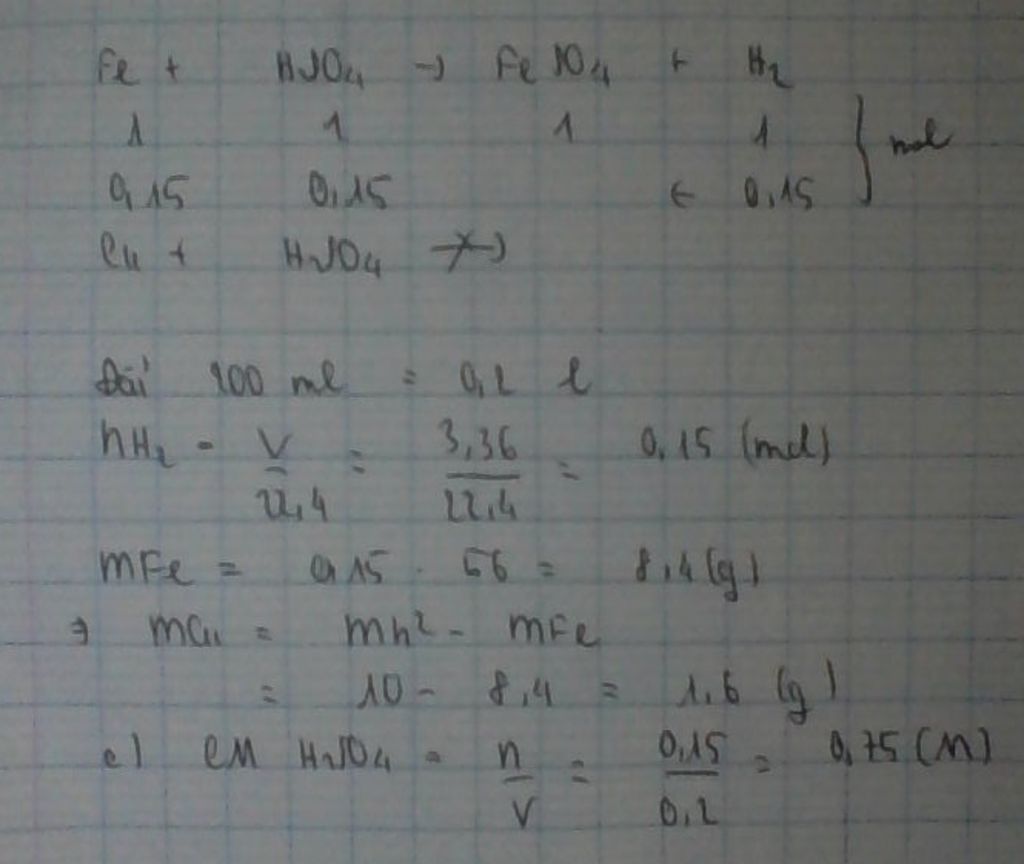 Fe + H2SO4 → FeSO4 + H2
1 1 1 1 } mol
0,15 0,15 ← 0,15
Cu + H2SO4 -/->
Đổi 200 ml = 0,2 l
nH2 = V/22,4 = 3,36/22,4 = 0,15 (mol)
mFe = 0,15 . 56 = 8,4 (g)
⇒ mCu = mh2 - mFe
= 10 - 8,4 = 1,6 (g)
c) CM H2SO4 = n/V = 0,15/0,2 = 0,75 (M)